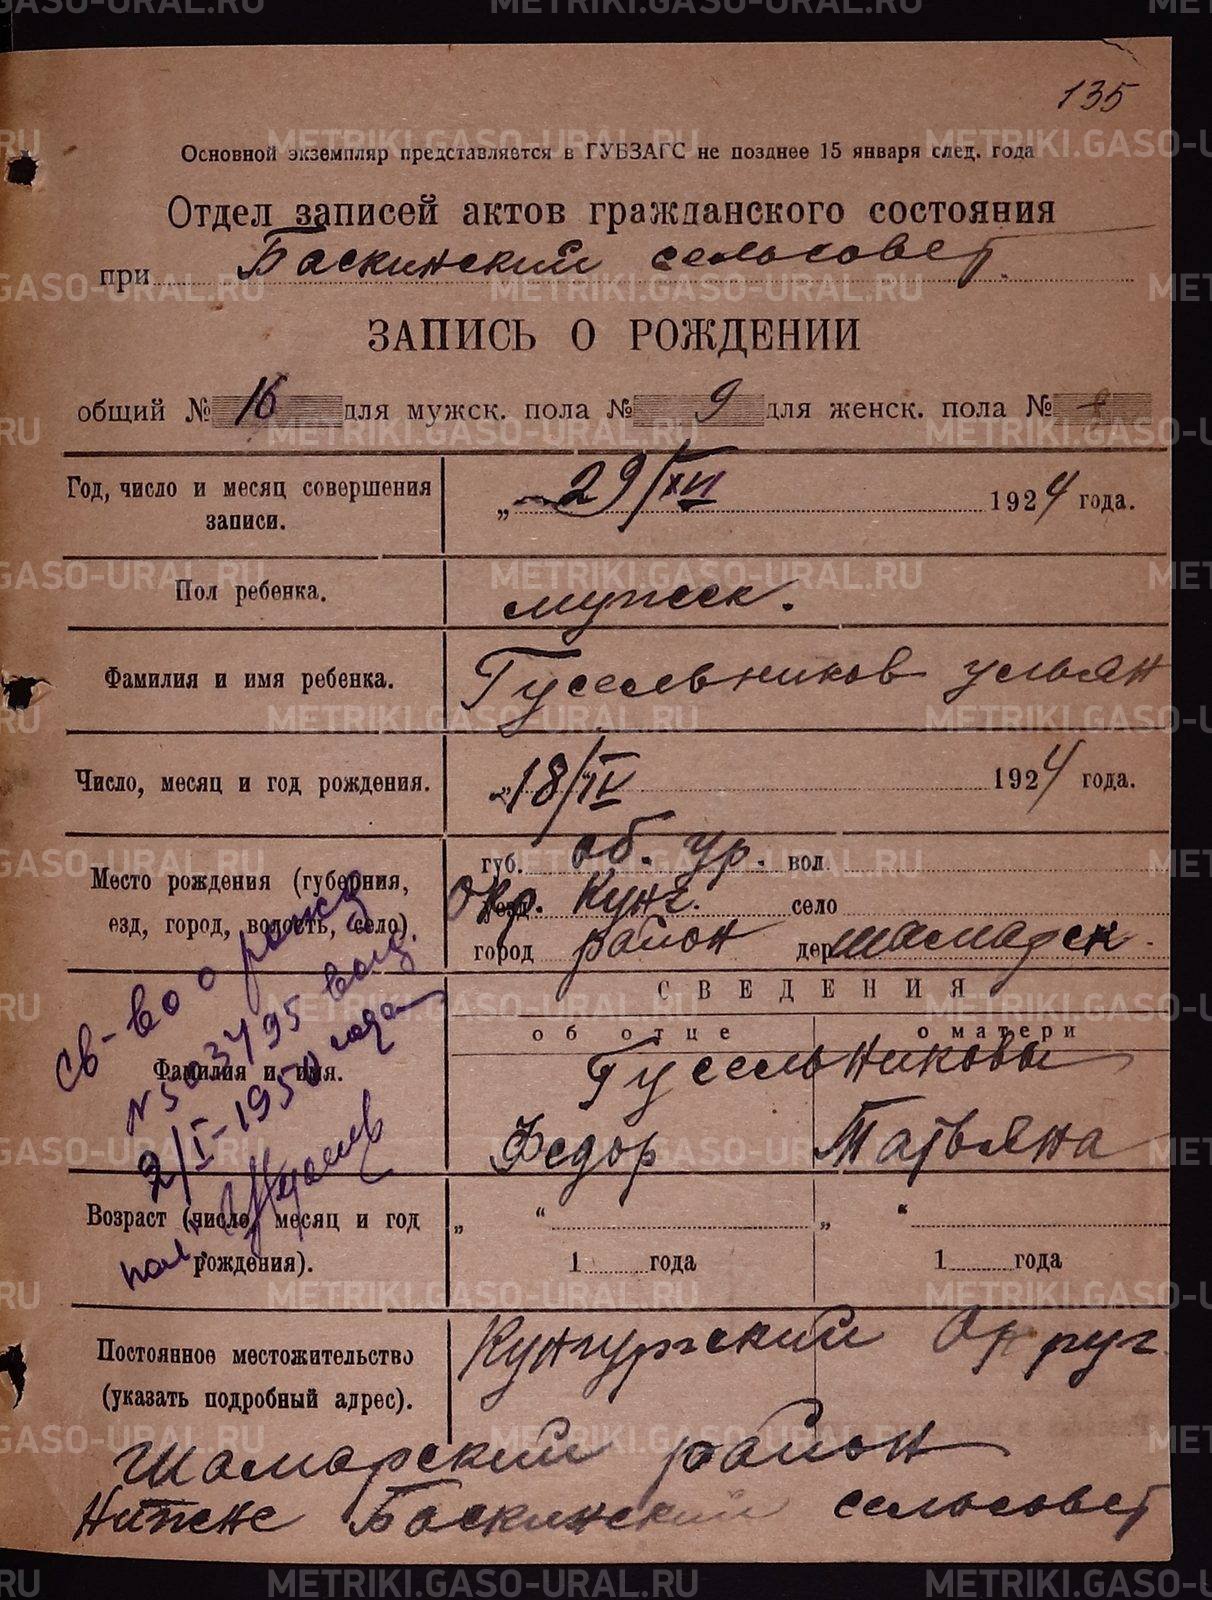 135
Основной экземпляр представляется в ГУБЗАГС не позднее 15 января след. года
Отдел записей актов гражданского состояния
при Баскинский сельсовет.
ЗАПИСЬ О РОЖДЕНИИ
общий № 16 для мужск. пола № 9 для женск. пола №
Год, число и месяц совершения записи. „ 29/XII 1924 года.
Пол ребенка. мужск.
Фамилия и имя ребенка. Гусельников Ульян
Число, месяц и год рождения. „18/IV 1924 года.
Место рождения (губерния, губ. об. Ур. вол
езд, город, волость, село). Окр. Кунг. село
город район дер
СВЕДЕНИЯ
об отце о матери
Фамилия и имя. Гусельниковы
Федор Татьяна
Св-во о рожд
N 503795 выд.
2/I-1950 года
Возраст (число, месяц и год рождения). „ “ „ “
1 года 1 года
Постоянное местожительство (указать подробный адрес). Кунгурский Округ
Шамарский район
Нижне Баскинский сельсовет
METRIKI.GASO-URAL.RU